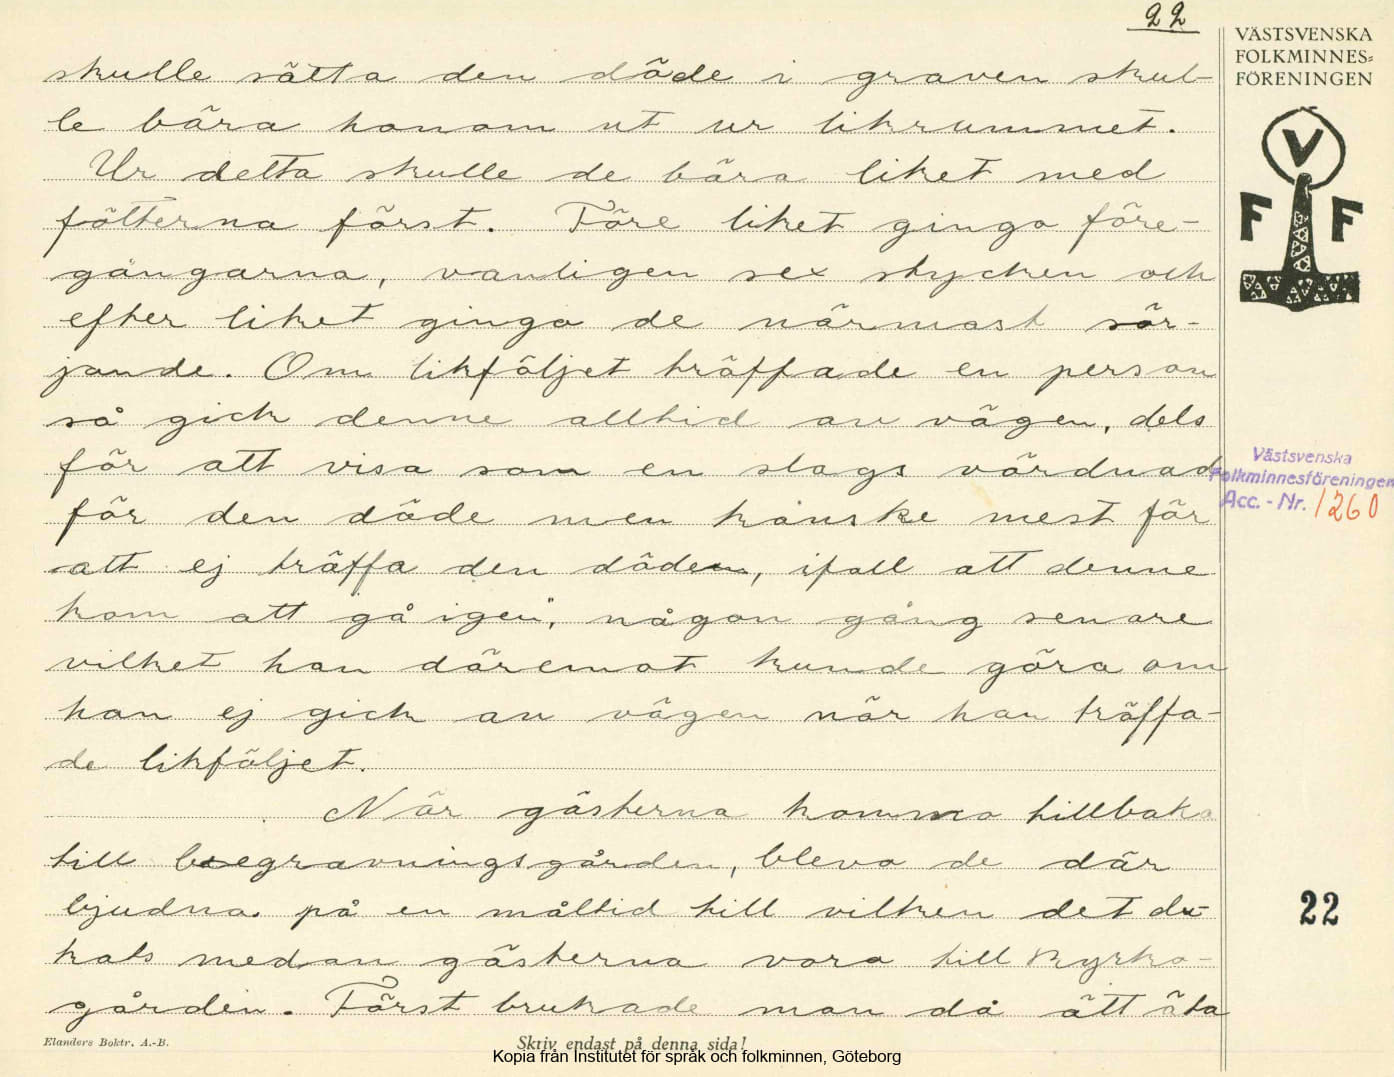 22
VÄSTSVENSKA
FOLKMINNES-
FÖRENINGEN
V
F F
skulle sätta den döde i graven skul-
le bära honom ut ur likrummet.
Ur detta skulle de bära liket med
fötterna först. Före liket gingo före-
gångarna, vanligen sex stycken och
efter liket gingo de närmast sör-
jande. Om likföljet träffade en person
så gick denne alltid av vägen, dels
för att visa som en slags vördnad
för den döde men kanske mest för
att ej träffa den döden, ifall att denne
kom att gå igen", någon gång senare
vilket han däremot kunde göra om
han ej gick av vägen när han träffa-
de likföljet.
När gästerna kommo tillbaka
till begravningsgården, blevo de där
bjudna på en måltid till vilken det du-
kats medan gästerna voro till kyrko-
gården. Först brukade man då ätt äta
Västsvenska
Folkminnesföreningen
Acc. - Nr. 1260
22
Elanders Boktr. A.-B.
Skriv endast på denna sida!
Kopia från Institutet för språk och folkminnen, Göteborg